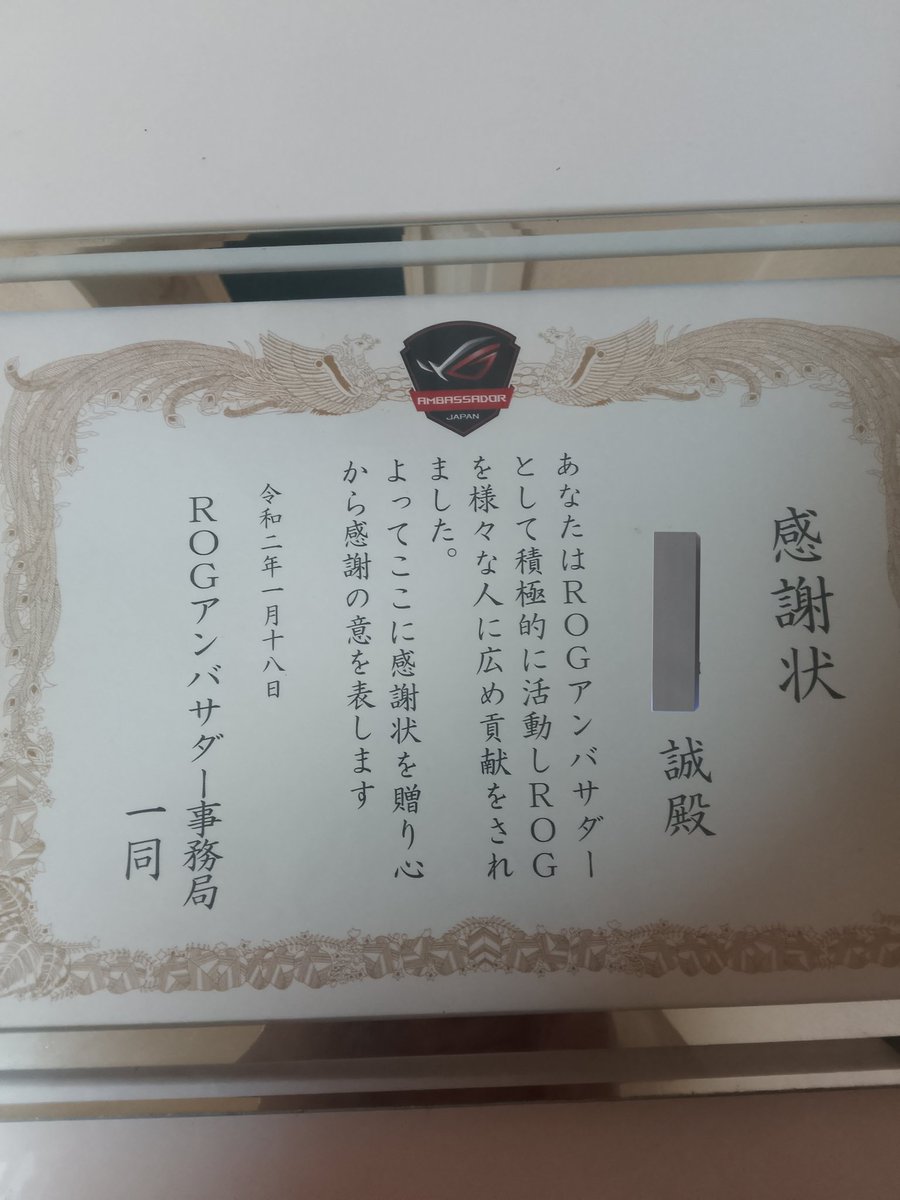 AMBASSADOR
JAPAN
感謝状
誠殿
あなたはROGアンバサダー
として積極的に活動しROG
を様々な人に広め貢献をされ
ました。
よってここに感謝状を贈り心
から感謝の意を表します
令和二年一月十八日
ROGアンバサダー事務局
一同